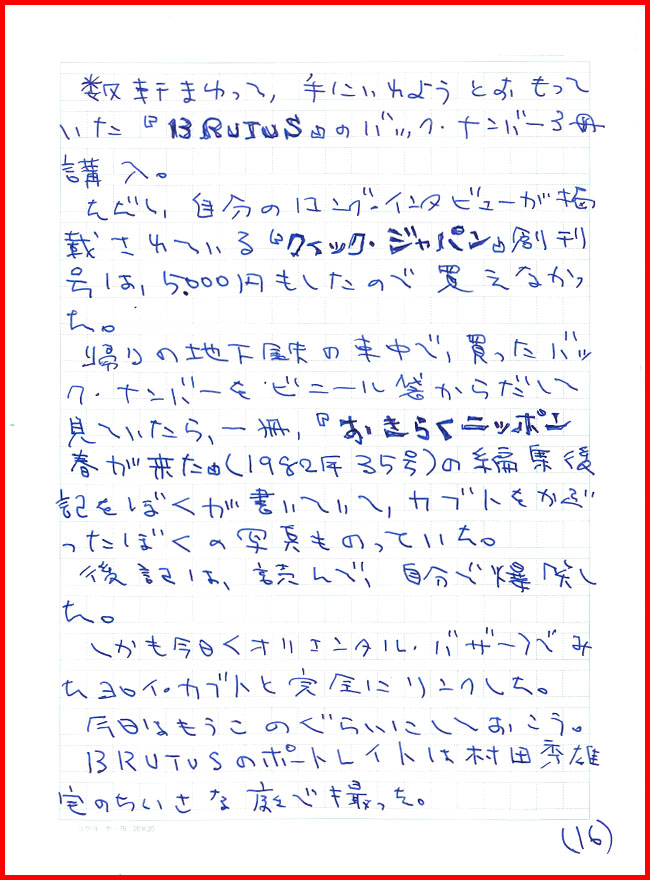 数軒まわって、手にいれようとおもって
いた『BRUTUS』のバック・ナンバー3冊
講入。
ただし、自分のロング・インタビューが掲
載されている『クイック・ジャパン』創刊
号は、5.000円もしたので買えなかっ
た。
帰りの地下鉄の車中で、買ったバッ
ク・ナンバーをビニール袋からだして
見ていたら、一冊、『おきらくニッポン
春が来た』(1982年35号)の編集後
記をぼくが書いていて、カブトをかぶ
ったぼくの写真ものっていた。
後記は、読んで、自分で爆笑し
た。
しかも今日くオリエンタル・バザー〉でみ
たヨロイ・カブトと完全にリンクした。
今日はもうこのぐらいにしておこう。
BRUTUSのポートレイトは村田秀雄
宅のちいさな庭で撮った。
(16)